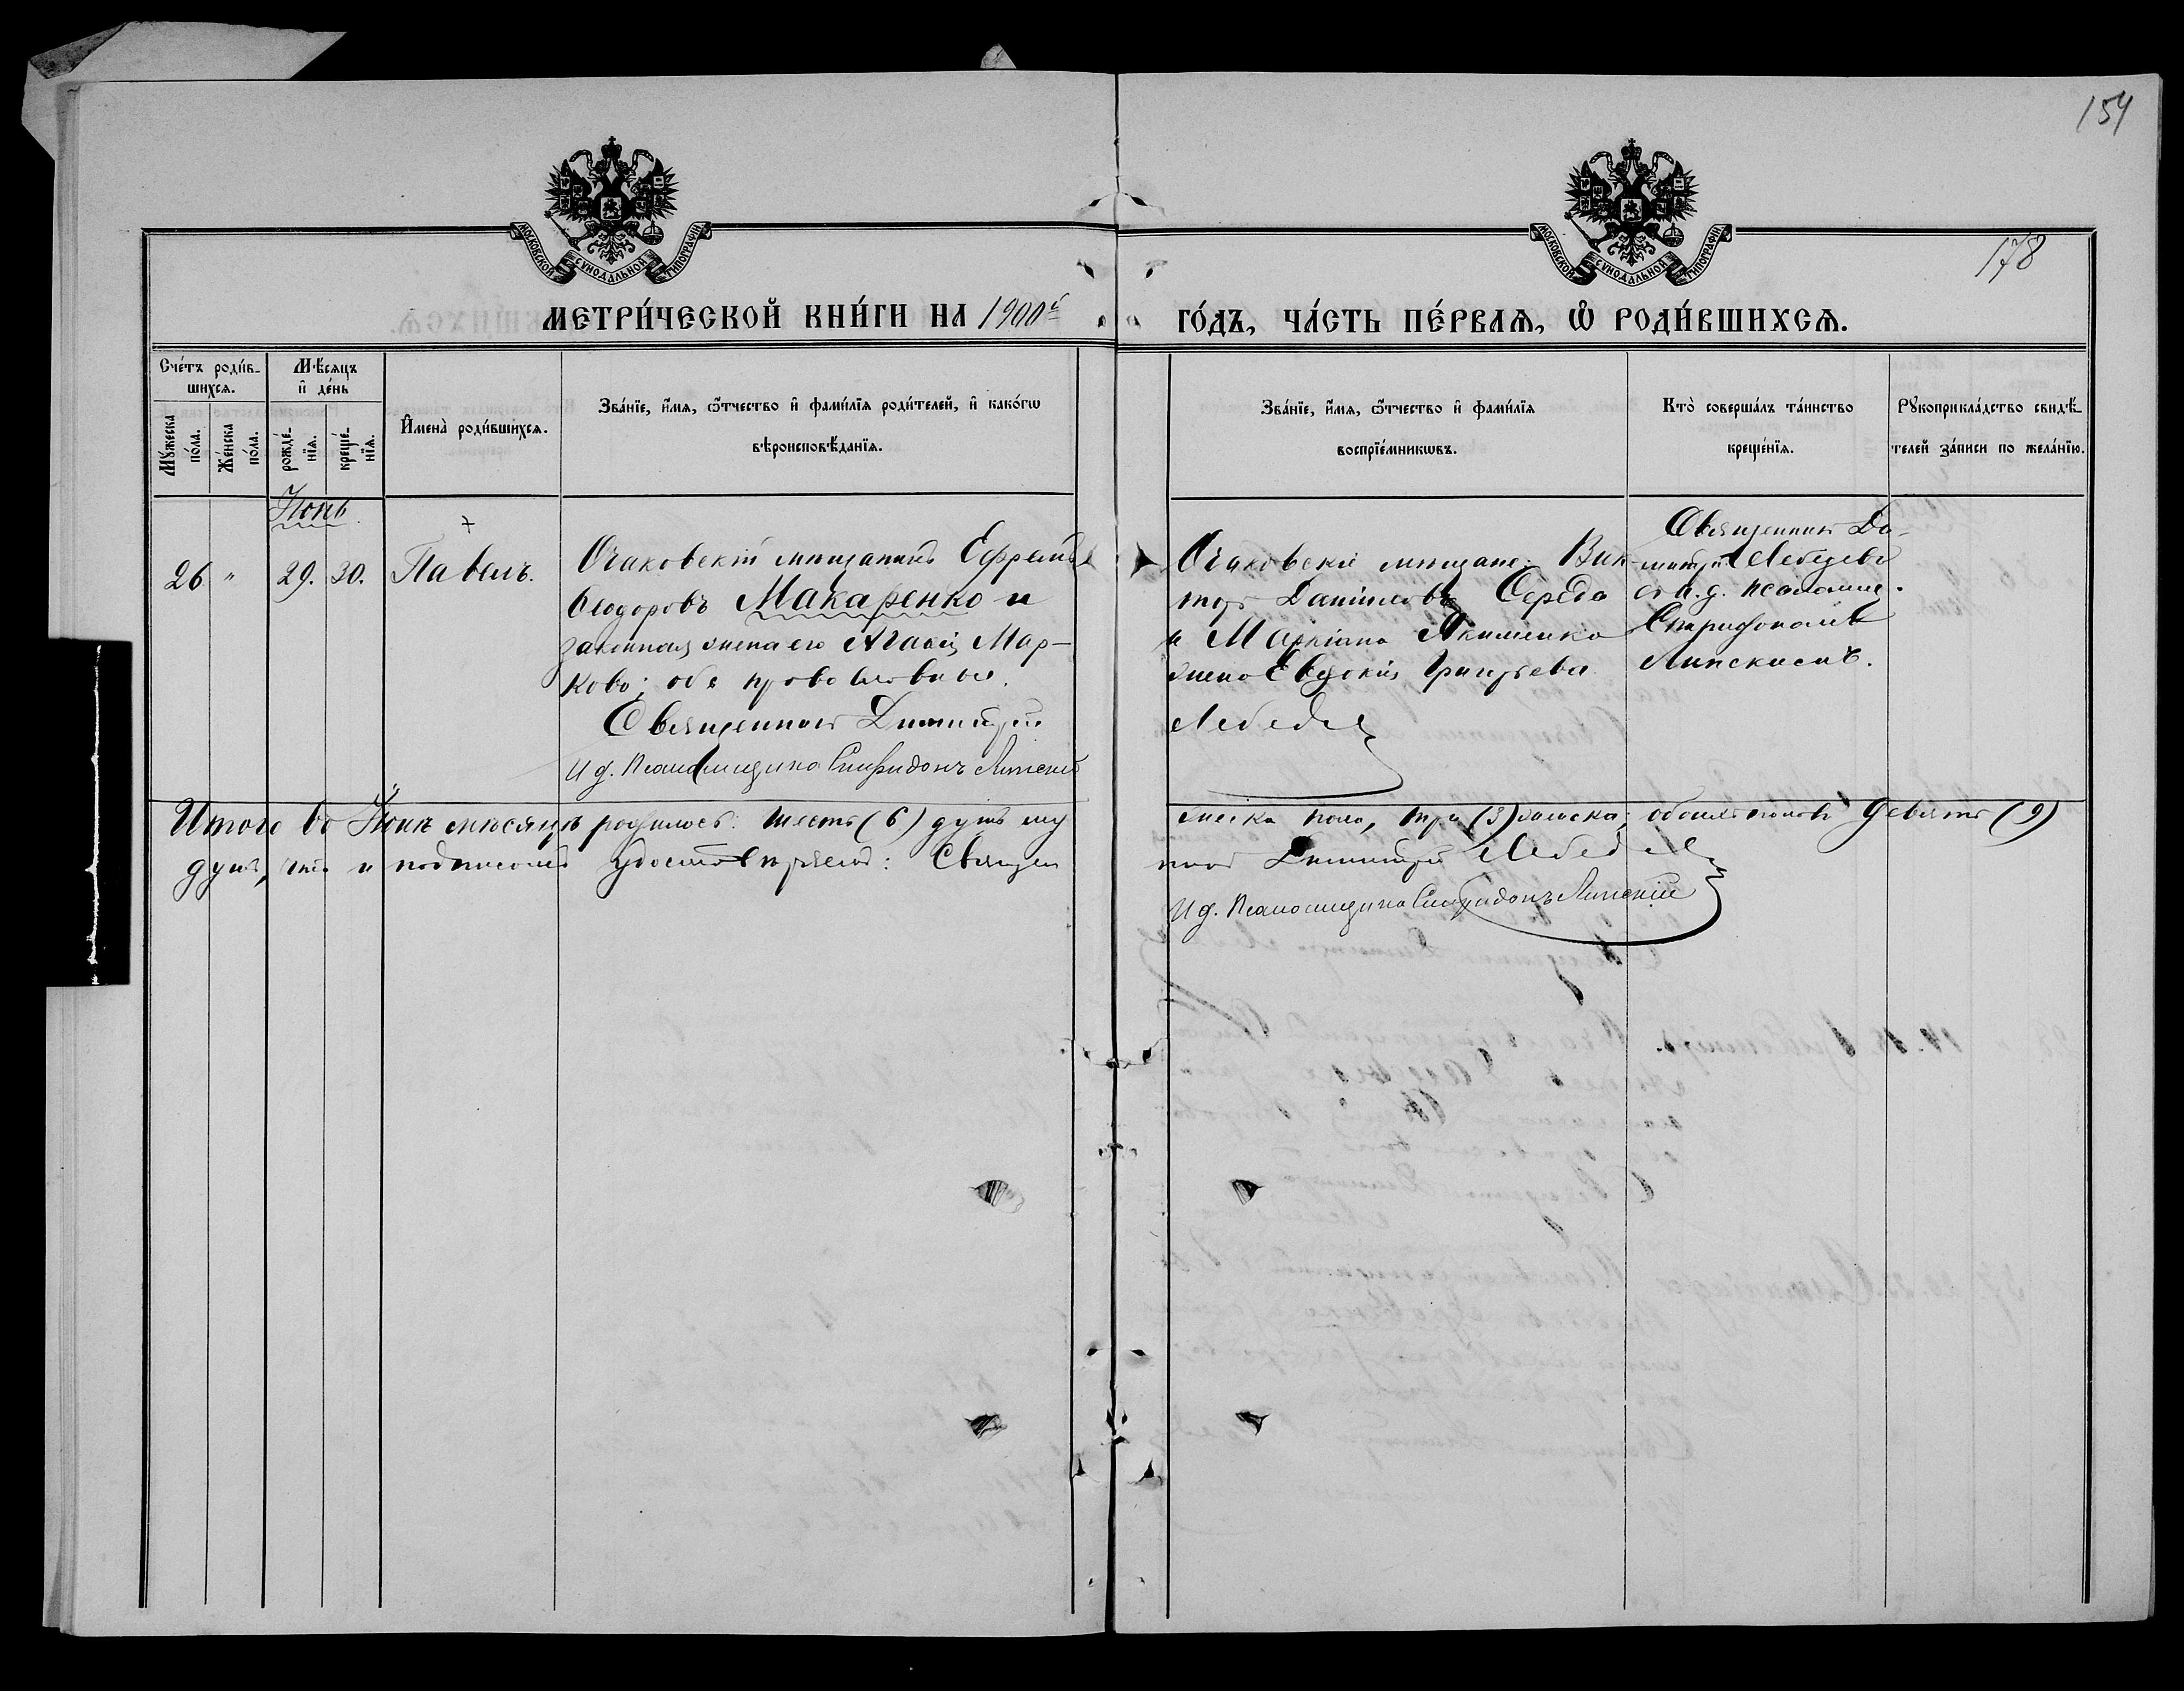 154
178
МОСКОВСКОЙ СѴНОДАЛЬНОЙ ТИПОГРАФІИ
МОСКОВСКОЙ СѴНОДАЛЬНОЙ ТИПОГРАФІИ
МЕТРИ́ЧЕСКОЙ КНИ́ГИ НА 1900й
ГО́ДЪ, ЧА́СТЬ ПЕ́РВАѦ, Ѡ҆ РОДИ́ВШИХСѦ.
Сче́тъ роди́в-
шихсѧ.
Мꙋ́жеска
по́ла.
Же́нска
по́ла.
Мѣ́сяцъ
и҆ де́нь
рожде́-
нїѧ.
креще́-
нїѧ.
И҆мена̀ роди́вшихсѧ.
Зва́нїе, и҆́мѧ, ѻ҆́тчество и҆ фами́лїѧ роди́телей, и҆ како́гѡ
вѣроисповѣ́данїѧ.
Зва́нїе, и҆́мѧ, ѻ҆́тчество и҆ фами́лїѧ
воспрїе́мникѡвъ.
Кто̀ соверша́лъ та́инство
креще́нїѧ.
Рꙋкоприкла́дство свидѣ́-
телей за́писи по жела́нїю.
Іюнь.
26 " 29. 30. Павелъ.
Очаковскій мѣщанинъ Ефремъ
Ѳеодоровъ Макаренко и
законная жена его Агаѳія Мар-
кова; оба православные.
Священникъ Димитрій
И. д. Псаломщика Спиридонъ Липскій
Очаковскіе мѣщане: Вик-
торъ Даніиловъ Середа
и Маркіана Якименка
жена Евдокія Григорьева
Лебедев
Священникъ Ди-
митрій Лебедевъ
съ и. д. псаломщ.
Спиридономъ
Липскимъ.
Итого въ Іюнѣ мѣсяцѣ родилось: шесть (6) душъ му
жеска пола, три (3) женска; обоихъ половъ девять (9)
душъ, что и подписомъ удостовѣряемъ: Священ
никъ Димитрій Лебедев
И д. Псаломщика Спиридонъ Липскій